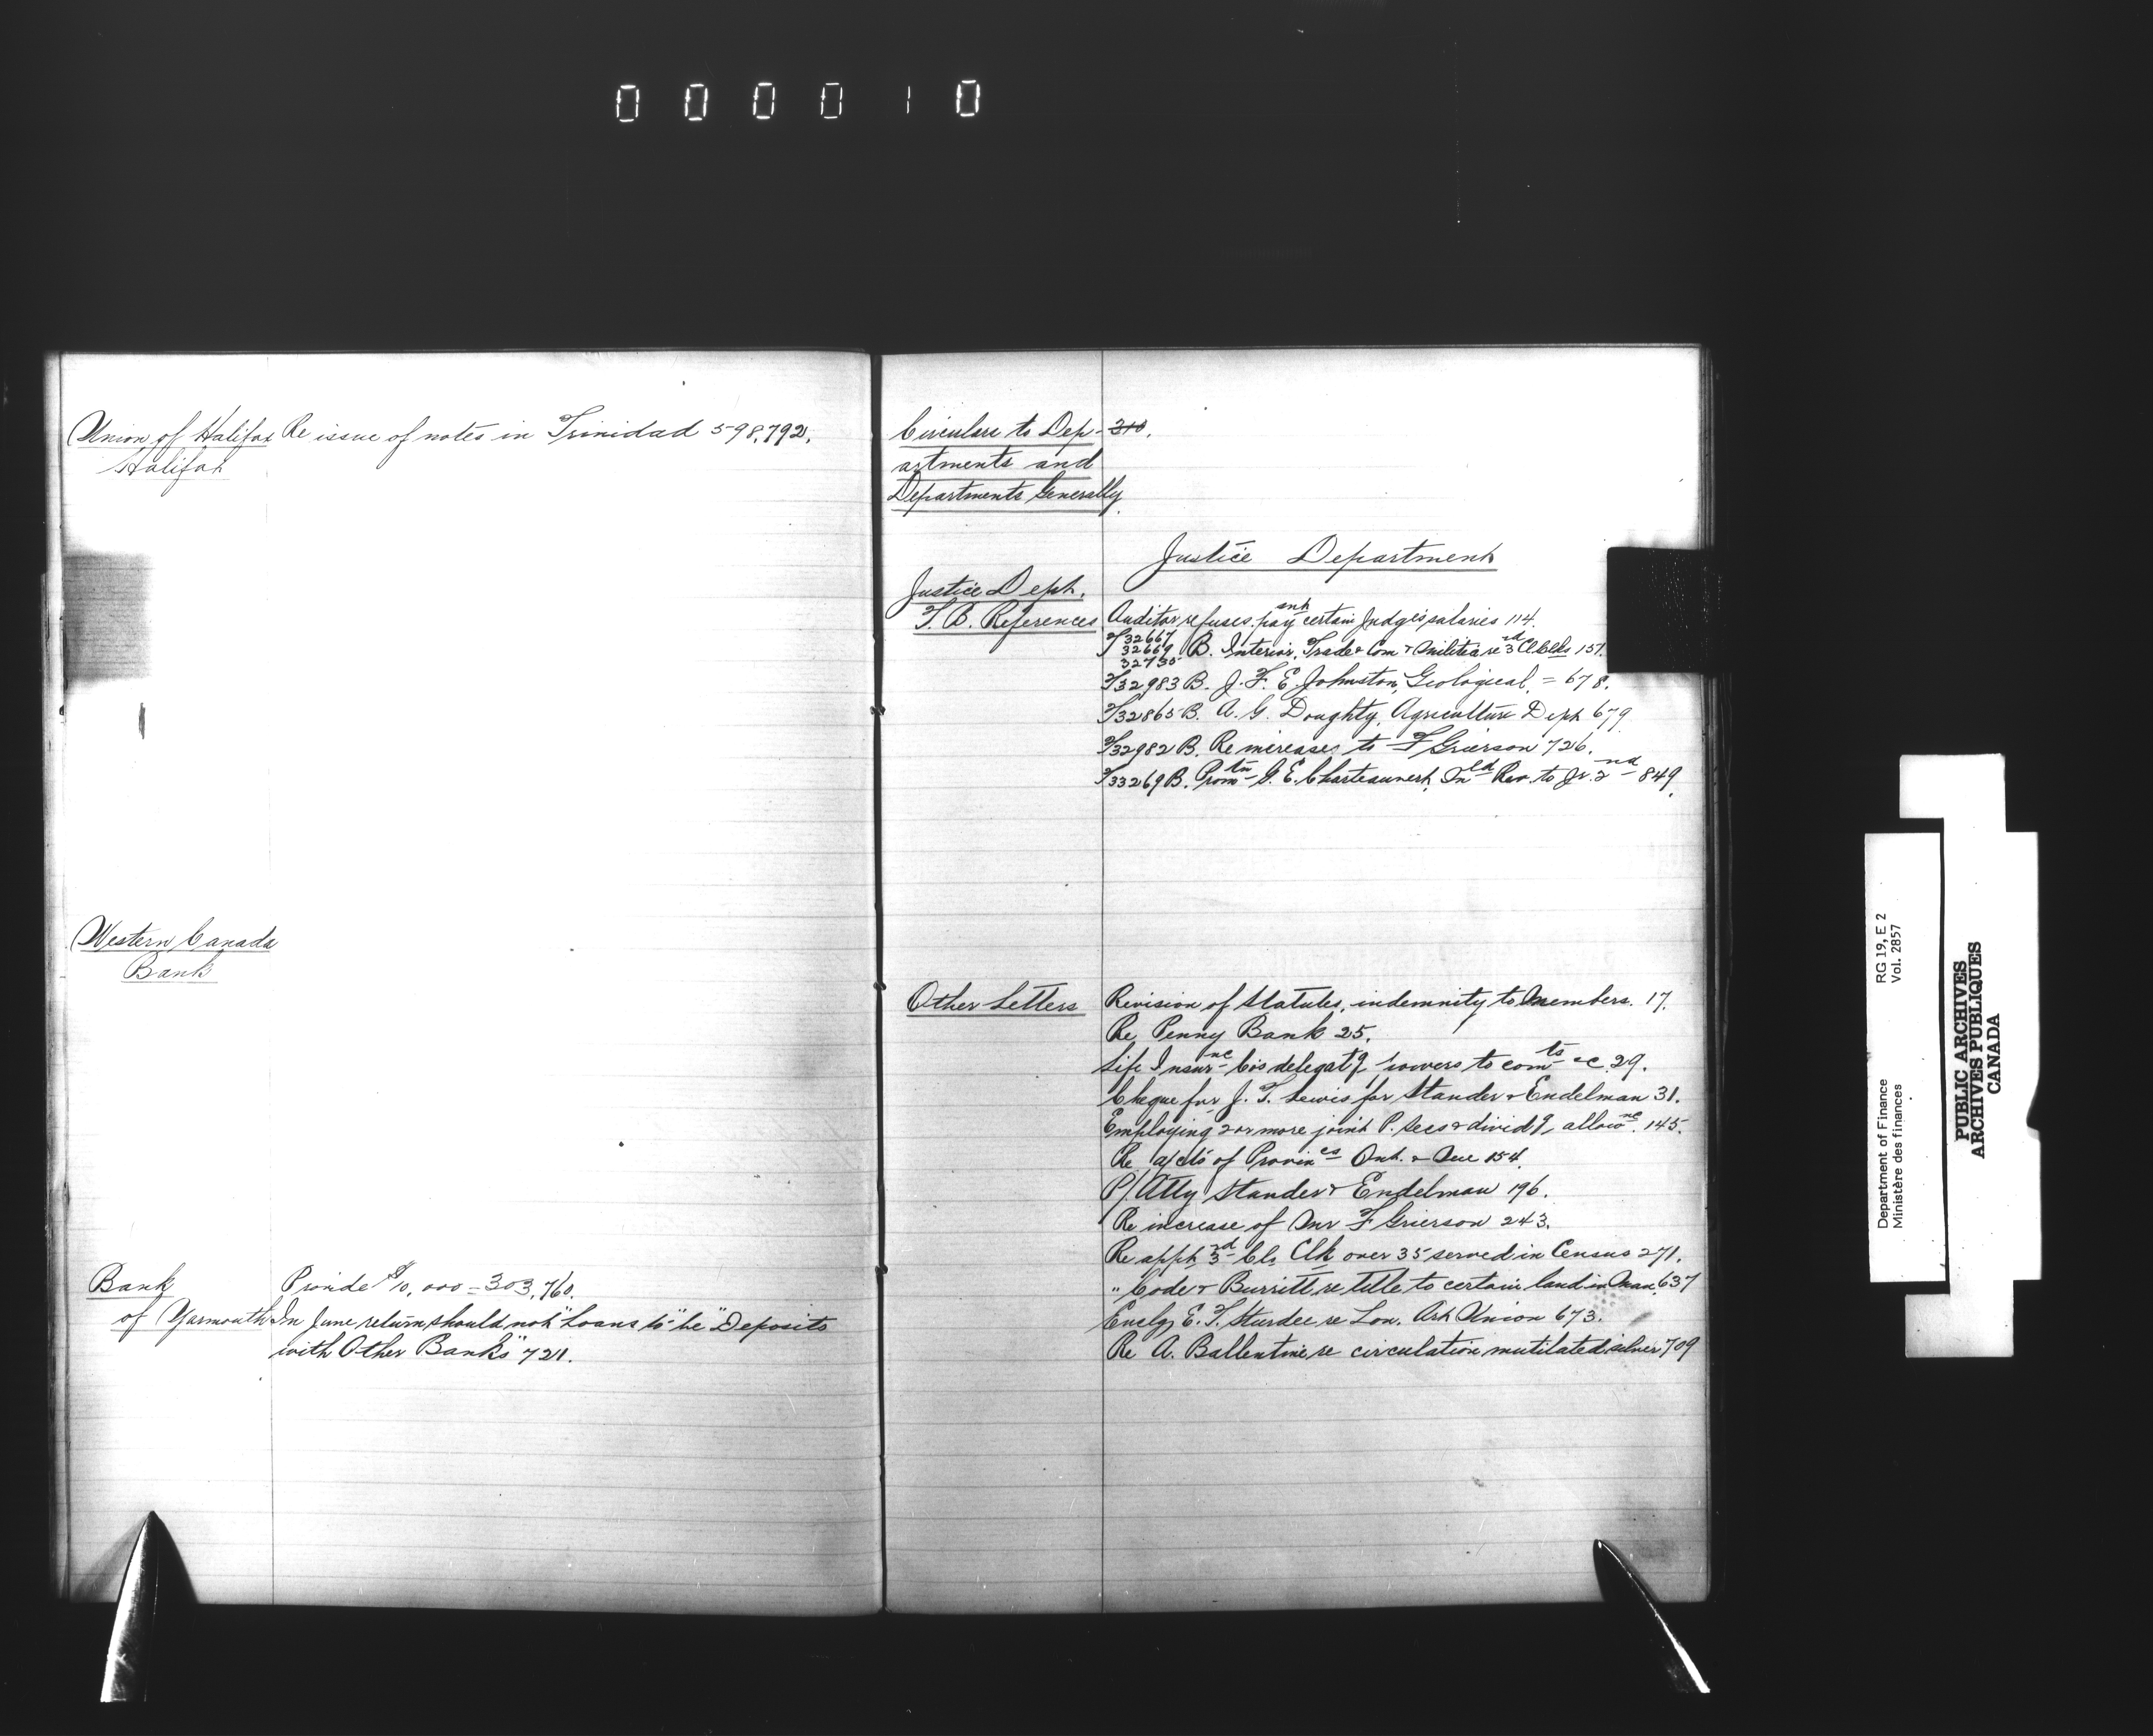 000010
Union of Halifax Re issue of notes in Trinidad 598,792.
Halifax
Western Canada
Bank
Bank Provide $10,000 = 303,760.
of Yarmouth In June return should not "Loans to" be "Deposits
with Other Banks" 721.
Circulars to Dep- 310.
artments and
Departments Generally.
Justice Department
Justice Dept.
T.B. References Auditor refuses pay certain Judges salaries 114.
T32667
32669 B. Interior, Trade & Com & Militia re 3rd Cl Clks 157.
32735
T32983 B. J. F. E. Johnston, Geological, = 678.
T32865 B. A. G. Doughty, Agriculture Dept 679
T32982 B. Re increases to F Grierson 726.
T33269 B. Promtn G. E. Inld Rev. to Jr. 2nd 849.
Other Letters Revision of Statutes, indemnity to Members. 17.
Re Penny Bank 25.
Life Insurnce Cos delegatg powers to comts &c 29.
Cheque for J. T. Lewis for Stander & Endelman 31.
Employing 2 or more joint P. Secs & dividg allownc. 145.
Re a/cts of Provinces Ont. & Que 154.
P/Atty Stander & Endelman 196.
Re increase of Mr F Grierson 243.
Re appt 3rd Cls Clk over 35 served in Census 271.
" Code & Burritt re title to certain land in Man. 637
Enclg E. T. Sturdee re Lon. Art Union 673.
Re A. Ballentine re circulation mutilated silver 709
Department of Finance RG 19, E 2
Ministère des finances Vol. 2857
PUBLIC ARCHIVES
ARCHIVES PUBLIQUES
CANADA